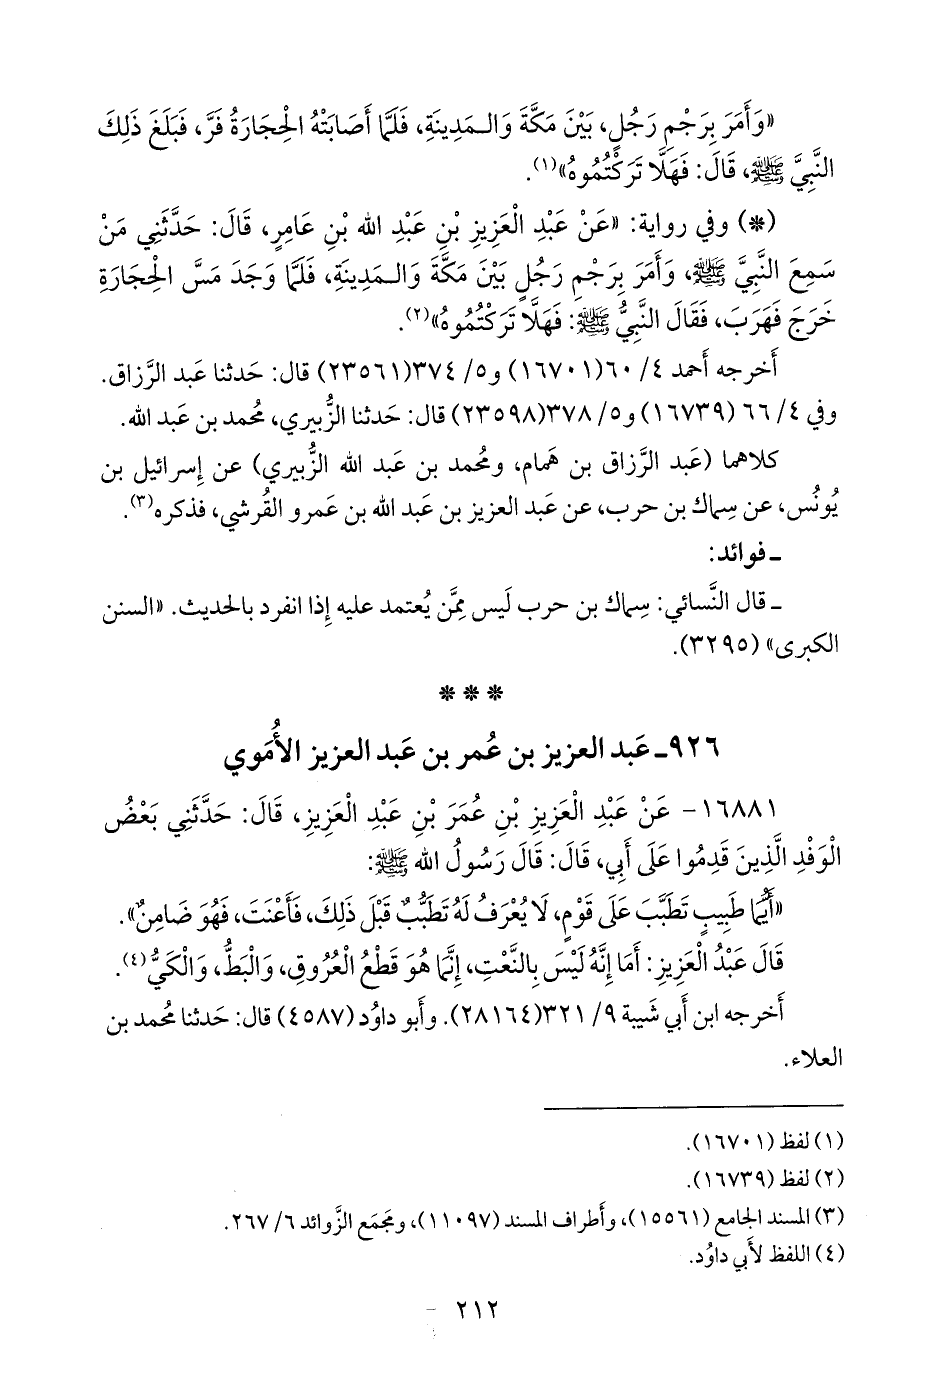 «وَأَمَرَ بِرَجْمِ رَجُلٍ، بَيْنَ مَكَّةَ وَالـمَدِينَةِ، فَلَمَّا أَصَابَتْهُ الْحِجَارَةُ فَرَّ، فَبَلَغَ ذَلِكَ
النَّبِيَّ ﷺ، قَالَ: فَهَلَّا تَرَكْتُمُوهُ»(١).
(*) وفي رواية: «عَنْ عَبْدِ الْعَزِيزِ بْنِ عَبْدِ الله بْنِ عَامِرٍ، قَالَ: حَدَّثَنِي مَنْ
سَمِعَ النَّبِيَّ ﷺ، وَأَمَرَ بِرَجْمِ رَجُلٍ بَيْنَ مَكَّةَ وَالـمَدِينَةِ، فَلَمَّا وَجَدَ مَسَّ الْحِجَارَةِ
خَرَجَ فَهَرَبَ، فَقَالَ النَّبِيُّ ﷺ: فَهَلَّا تَرَكْتُمُوهُ»(٢).
أَخرجه أَحمد ٤/ ٦٠(١٦٧٠١) و٥/ ٣٧٤(٢٣٥٦١) قال: حَدثنا عَبد الرَّزاق.
وفي ٤/ ٦٦ (١٦٧٣٩) و٥/ ٣٧٨(٢٣٥٩٨) قال: حَدثنا الزُّبيري، مُحمد بن عَبد الله.
كلاهما (عَبد الرَّزاق بن هَمام، ومُحمد بن عَبد الله الزُّبيري) عن إِسرائيل بن
يُونُس، عن سِماك بن حرب، عن عَبد العزيز بن عَبد الله بن عَمرو القُرشي، فذكره(٣).
ـ فوائد:
ـ قال النَّسائي: سِماك بن حرب لَيس مِمَّن يُعتمد عليه إِذا انفرد بالحديث. «السنن
الكبرى» (٣٢٩٥).
* * *
٩٢٦ـ عَبد العزيز بن عُمر بن عَبد العزيز الأُمَوي
١٦٨٨١- عَنْ عَبْدِ الْعَزِيزِ بْنِ عُمَرَ بْنِ عَبْدِ الْعَزِيزِ، قَالَ: حَدَّثَنِي بَعْضُ
الْوَفْدِ الَّذِينَ قَدِمُوا عَلَى أَبِي، قَالَ: قَالَ رَسُولُ الله ﷺ:
«أَيُّمَا طَبِيبٍ تَطَبَّبَ عَلَى قَوْمٍ، لَا يُعْرَفُ لَهُ تَطَبُّبٌ قَبْلَ ذَلِكَ، فَأَعْنَتَ، فَهُوَ ضَامِنٌ».
قَالَ عَبْدُ الْعَزِيزِ: أَمَا إِنَّهُ لَيْسَ بِالنَّعْتِ، إِنَّمَا هُوَ قَطْعُ الْعُرُوقِ، وَالْبَطُّ، وَالْكَيُّ(٤).
أَخرجه ابن أَبي شَيبة ٩/ ٣٢١(٢٨١٦٤). وأَبو داوُد (٤٥٨٧) قال: حَدثنا مُحمد بن
العلاء.
(١) لفظ (١٦٧٠١).
(٢) لفظ (١٦٧٣٩).
(٣) المسند الجامع (١٥٥٦١)، وأَطراف المسند (١١٠٩٧)، ومَجمَع الزَّوائد ٦/ ٢٦٧.
(٤) اللفظ لأَبي داوُد.
٢١٢